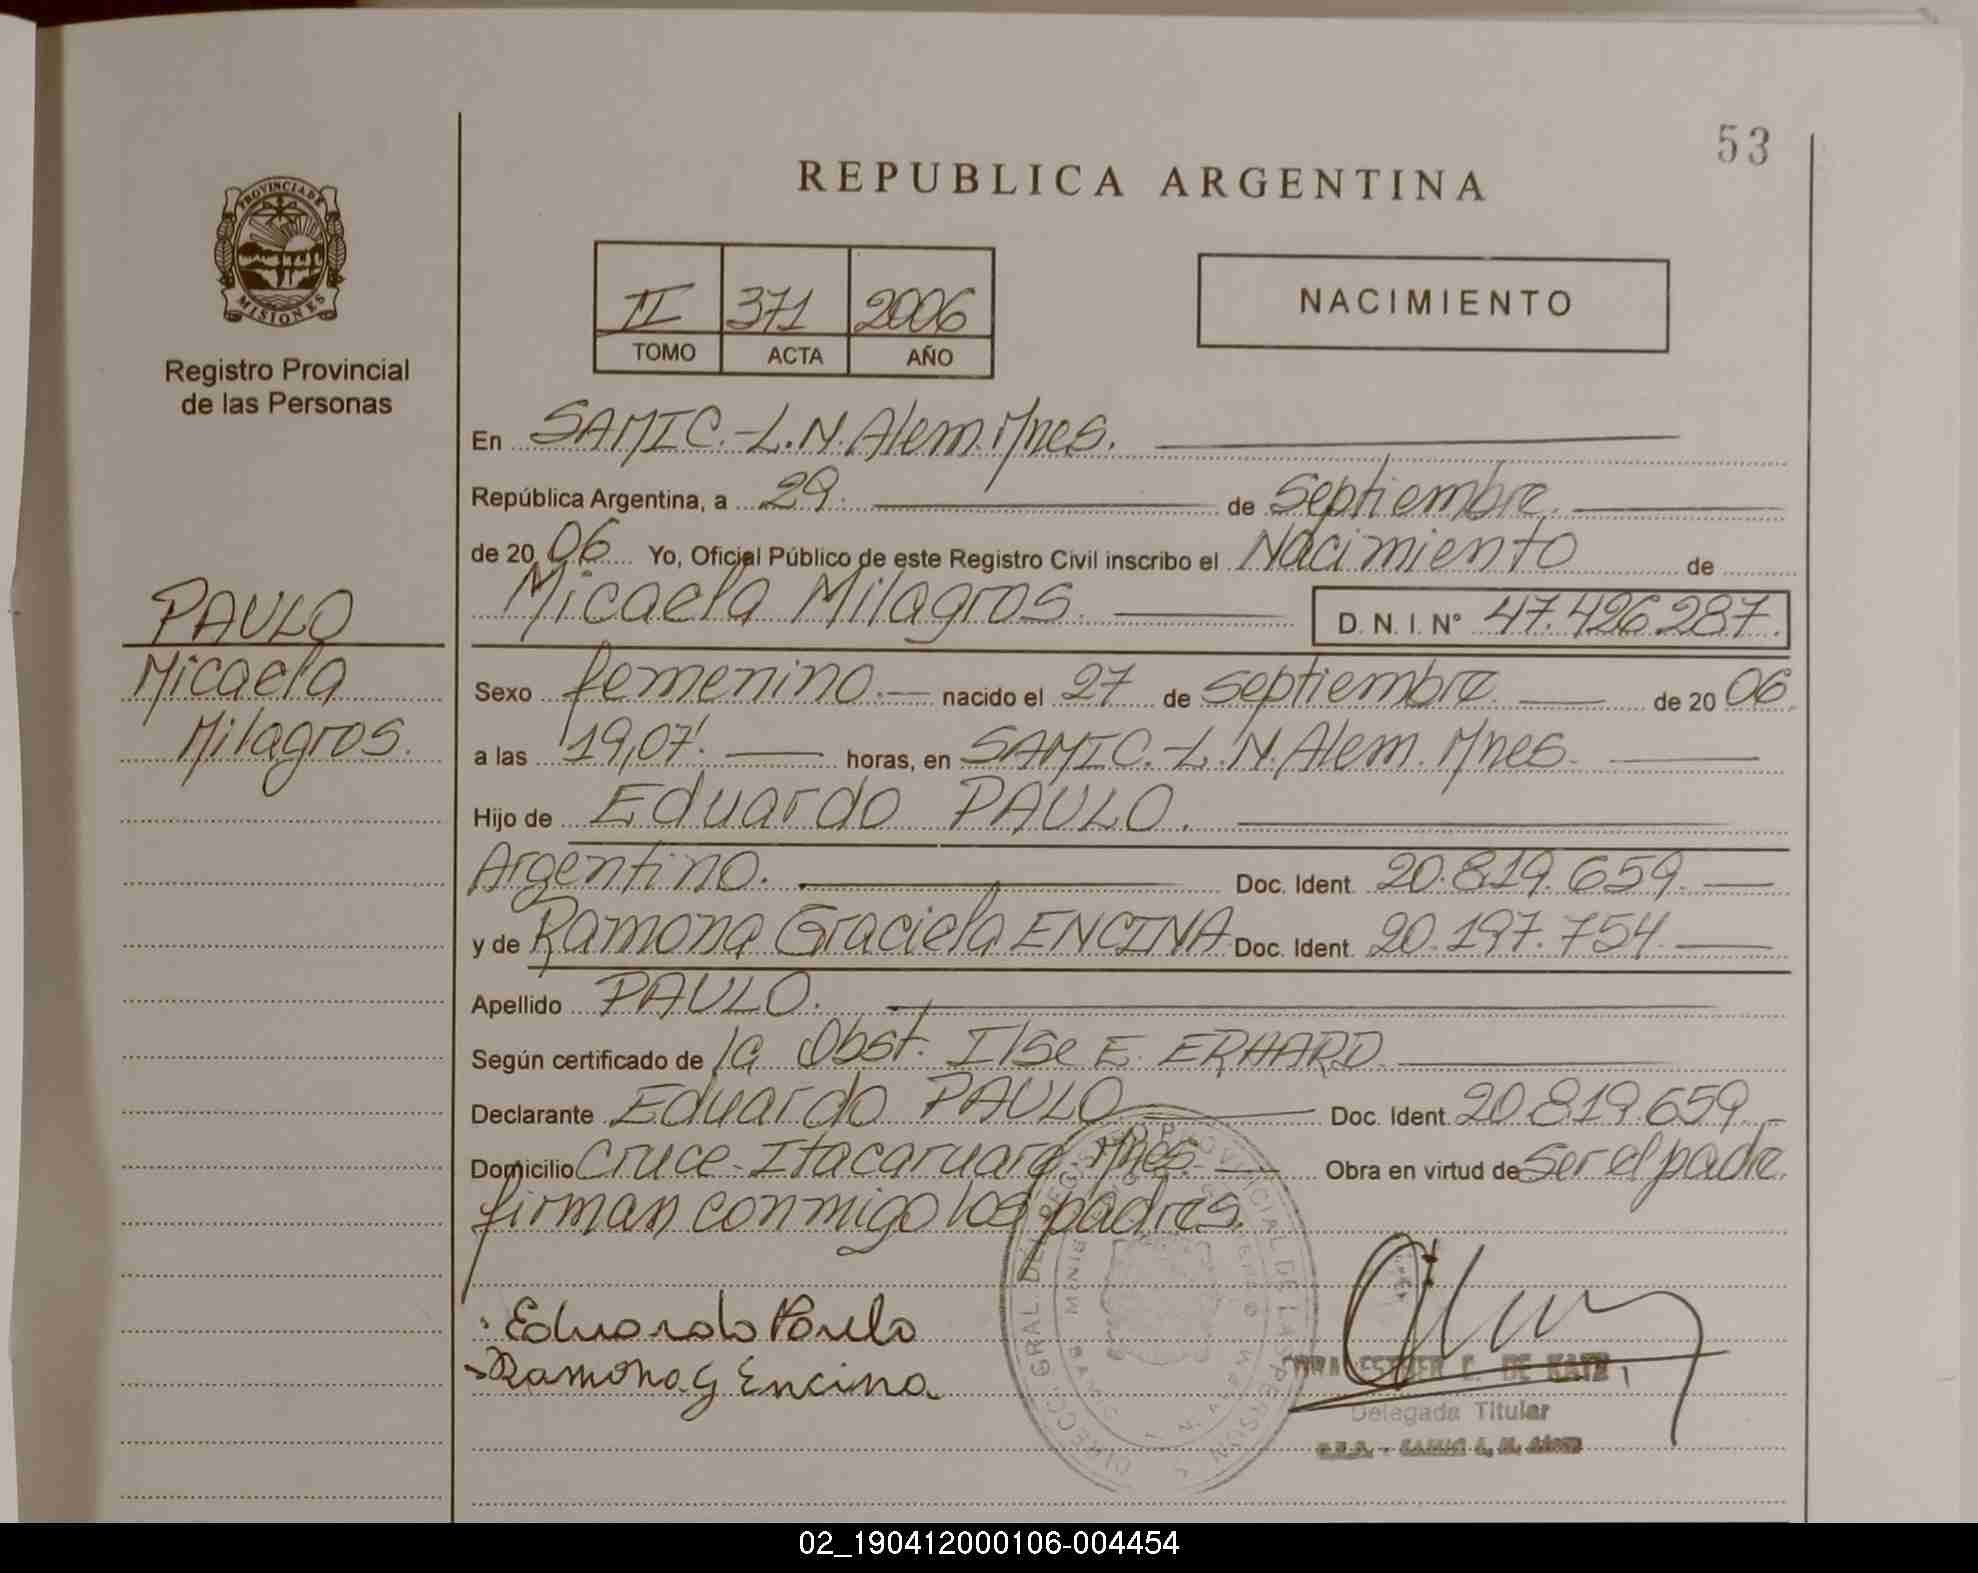 53
REPUBLICA ARGENTINA
PROVINCIA DE
MISIONES
Registro Provincial
de las Personas
II 371 2006
TOMO ACTA AÑO
NACIMIENTO
En SAMIC.-L.N.Alem.Mnes.
República Argentina, a 29. de Septiembre.
de 20 06 Yo, Oficial Público de este Registro Civil inscribo el Nacimiento de
Micaela Milagros. D.N.I. N° 47.426.287.
PAULO
Micaela
Milagros.
Sexo femenino. nacido el 27 de septiembre de 20 06.
a las 19,07'. horas, en SAMIC.-L.N.Alem. Mnes.
Hijo de Eduardo PAULO.
Argentino. Doc. Ident. 20.819.659.
y de Ramona Graciela ENCINA Doc. Ident. 20.197.754.
Apellido PAULO.
Según certificado de la Obst. Ilse E. ERHARD
Declarante Eduardo PAULO Doc. Ident. 20.819.659.-
Domicilio Cruce-Itacaruare, Mnes. Obra en virtud de Ser el padre.
firman conmigo los padres.
Eduardo Paulo
Ramona G Encina
DIRECC. GRAL. DEL REGISTRO PROVINCIAL DE LAS PERSONAS
ESTHER C. DE
Delegada Titular
02_190412000106-004454